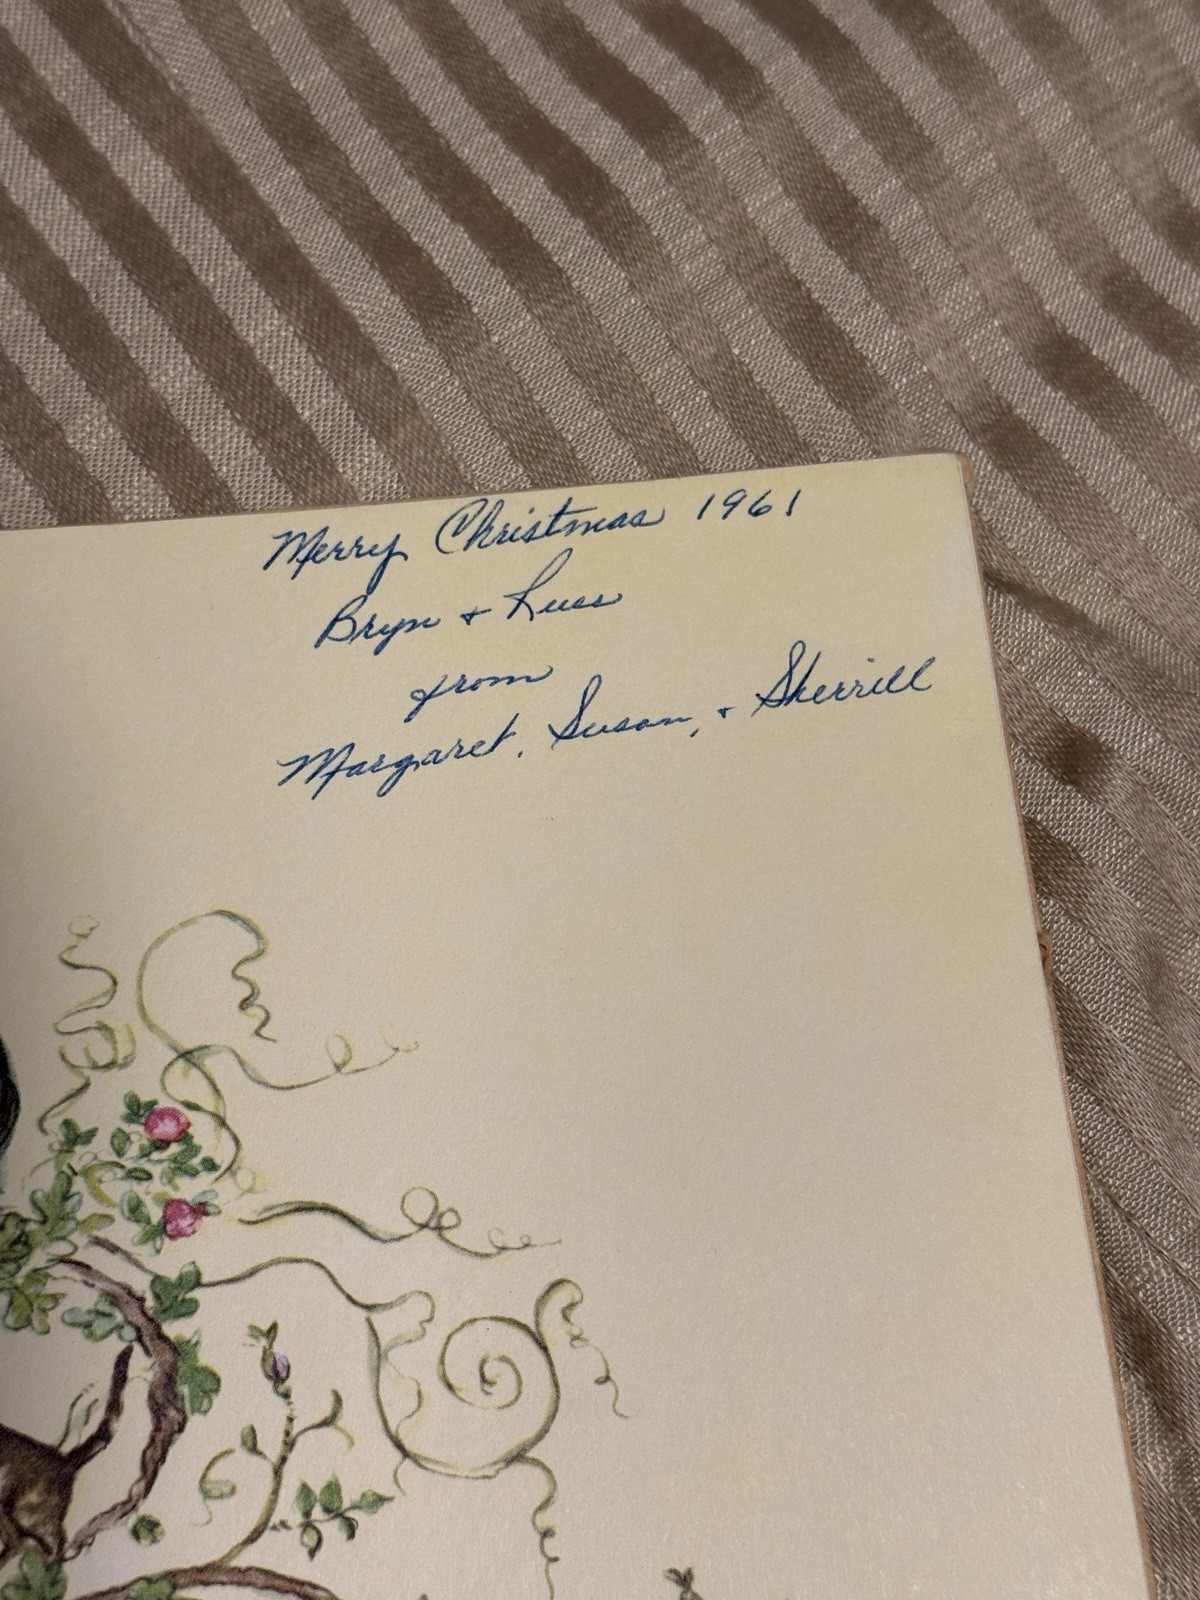 Merry Christmas 1961
Bryn + Russ
from
Margaret, Susan, + Sherrill